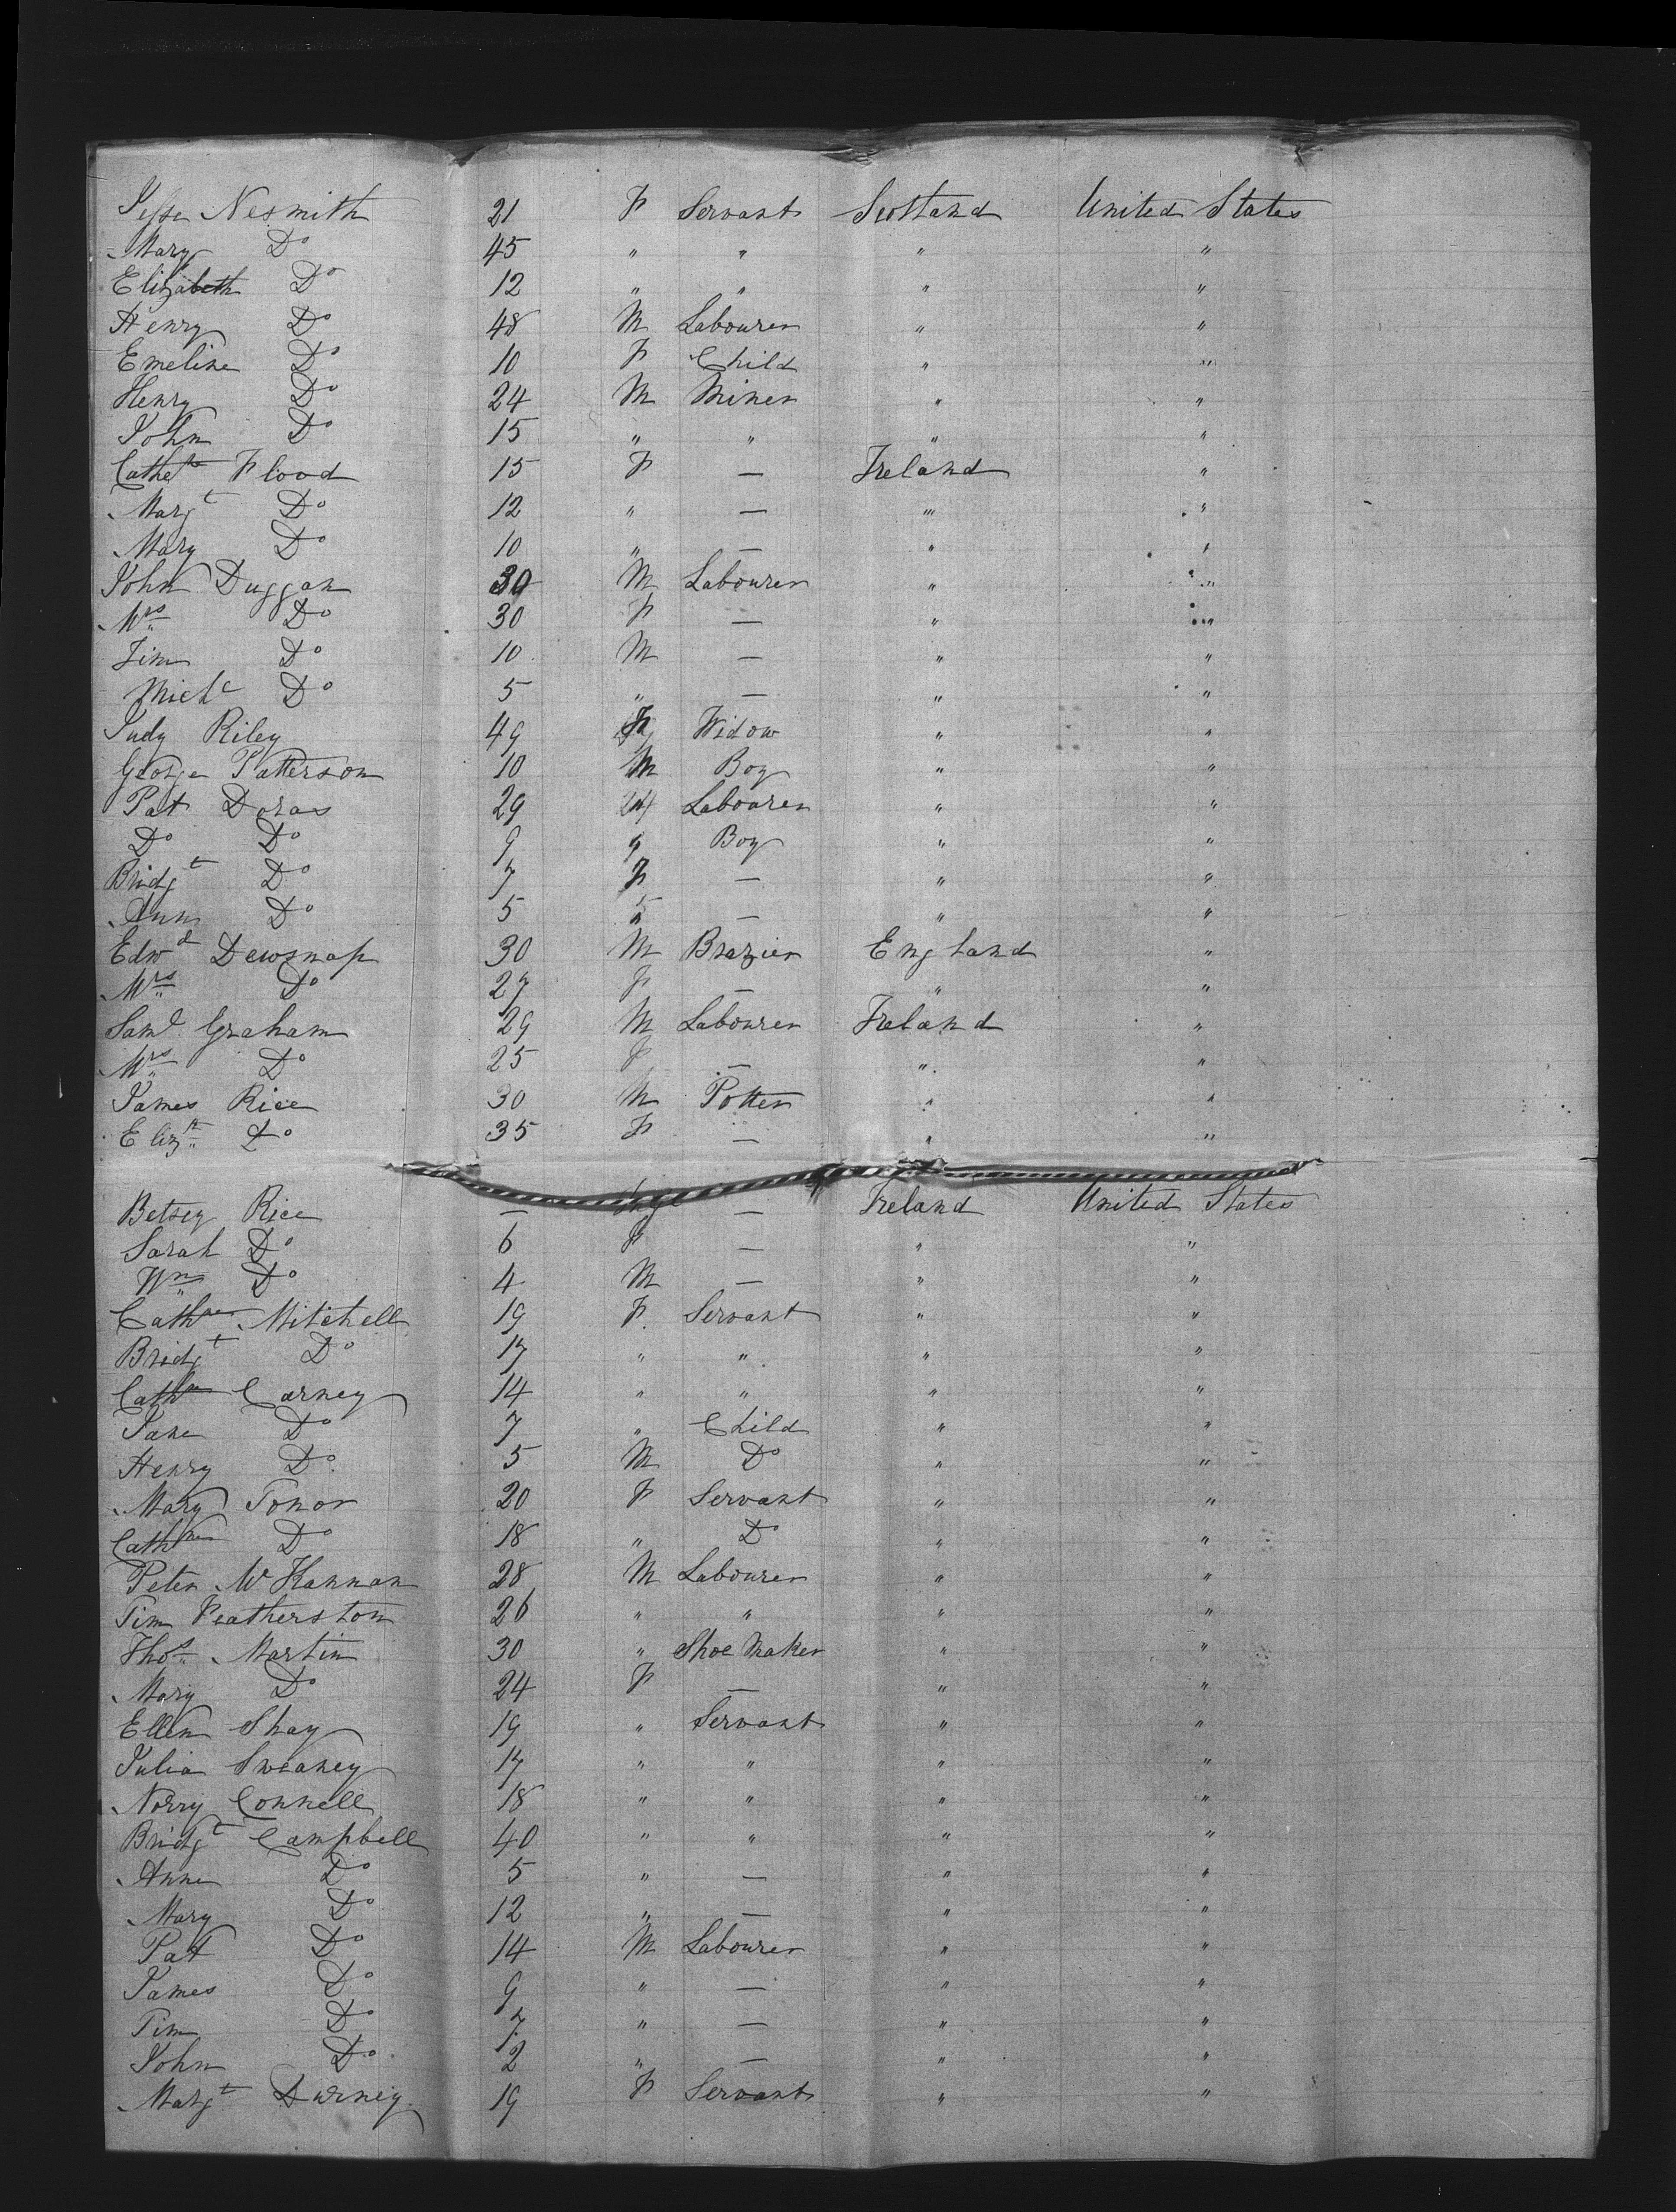 Jesse Nesmith 21 F Servant Scotland United States
Mary Do 45 " " " "
Elizabeth Do 12 " " " "
Henry Do 48 M Labourer " "
Emeline Do 10 F Child " "
Henry Do 24 M Miner " "
John Do 15 " " " "
Cathe Flood 15 F — Ireland "
Margt Do 12 " — " "
Mary Do 10 " — " "
John Duggan 30 M Labourer " "
Mrs Do 30 F — " "
Tim Do 10 M — " "
Michl Do 5 " — " "
Judy Riley 49 F Widow " "
George Patterson 10 M Boy " "
Pat Doras 29 Labourer " "
Do Do 9 Boy " "
Bridgt Do 7 F — " "
Ann Do 5 — " "
Edwd Dewsnap 30 M Brazier England "
Mrs Do 27 F — " "
Saml Graham 29 M Labourer Ireland "
Mrs Do 25 F — " "
James Rice 30 M Potter " "
Elizth Do 35 F — " "
Betsey Rice — — Ireland United States
Sarah Do 6 F — " "
Wm Do 4 M — " "
Cathne Mitchell 19 F Servant " "
Bridgt Do 17 " " " "
Cathne Carney 14 " " " "
Jane Do 7 " Child " "
Henry Do 5 M Do " "
Mary Tonor 20 F Servant " "
Cathne Do 18 " Do " "
Peter McKannan 28 M Labourer " "
Tim Featherston 26 " " " "
Thos Martin 30 " Shoe Maker " "
Mary Do 24 F — " "
Ellen Shay 19 " Servant " "
Julia Sweaney 17 " " " "
Norry Connell 18 " " " "
Bridgt Campbell 40 " " " "
Anne Do 5 " — " "
Mary Do 12 " — " "
Pat Do 14 M Labourer " "
James Do 9 " — " "
Tim Do 7 " — " "
John Do 2 " — " "
Margt Durney 19 F Servant " "